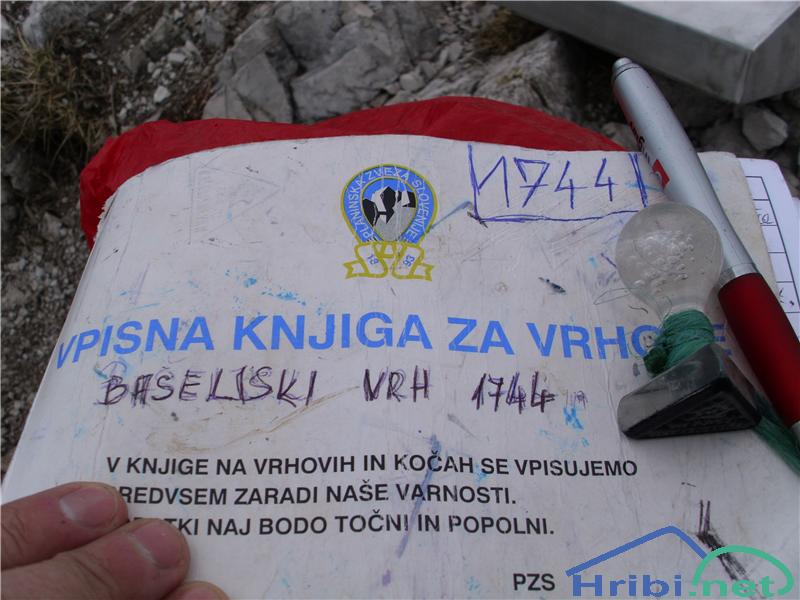 1744
PLANINSKA ZVEZA SLOVENIJE
18 93
VPISNA KNJIGA ZA VRHOVE
BAŠELJSKI VRH 1744 m
V KNJIGE NA VRHOVIH IN KOČAH SE VPISUJEMO
REDVSEM ZARADI NAŠE VARNOSTI.
TKI NAJ BODO TOČNI IN POPOLNI.
PZS
Hribi.net